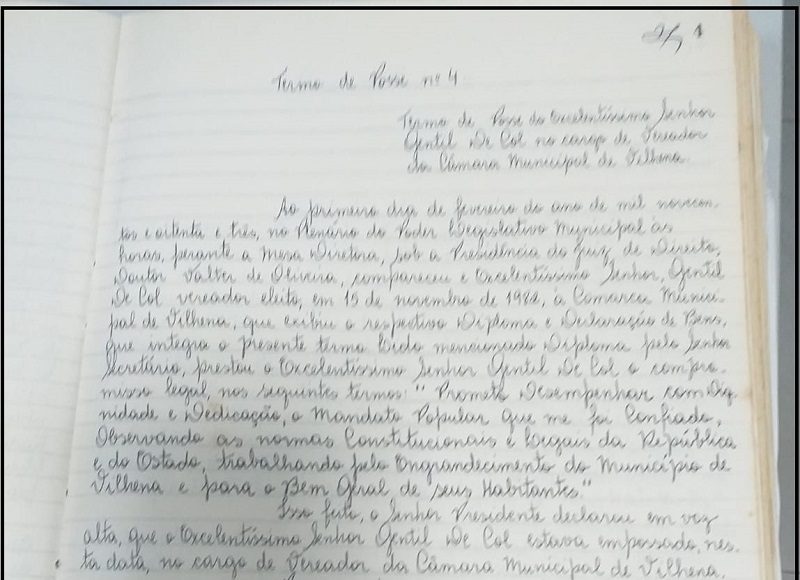 Termo de Posse nº 4
Termo de Posse do Excelentíssimo Senhor
Gentil De Col no cargo de Vereador
da Câmara Municipal de Vilhena
Ao primeiro dia de fevereiro do ano de mil novecen-
tos e oitenta e três, no Plenário do Poder Legislativo Municipal às
horas, perante a Mesa Diretora, sob a Presidência do Juiz de Direito,
Doutor Valter de Oliveira, compareceu o Excelentíssimo Senhor, Gentil
De Col vereador eleito, em 15 de novembro de 1982, a Comarca Munici-
pal de Vilhena, que exibiu o respectivo Diploma e Declaração de Bens,
que integra o presente termo Lido mencionado Diploma pelo Senhor
Secretário, prestou o Excelentíssimo Senhor Gentil De Col o compro-
misso legal, nos seguintes termos: " Prometo Desempenhar com Dig-
nidade e Dedicação, o Mandato Popular que me foi Confiado,
Observando as normas Constitucionais e Legais da República
e do Estado, trabalhando pelo Engrandecimento do Município de
Vilhena e para o Bem Geral de seus Habitantes."
Isso feito, o Senhor Presidente declarou em voz
alta, que o Excelentíssimo Senhor Gentil De Col estava empossado, nes-
ta data, no cargo de Vereador da Câmara Municipal de Vilhena,